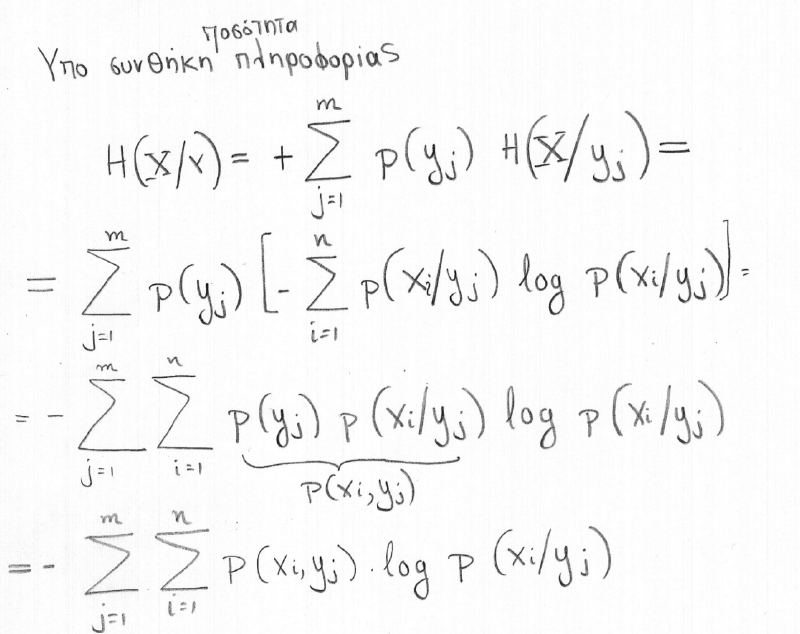 Υπο συνθήκη ποσότητα πληροφορίας
H(X/Y) = + \sum_{j=1}^{m} p(y_j) H(X/y_j) =
= \sum_{j=1}^{m} p(y_j) [ - \sum_{i=1}^{n} p(x_i/y_j) log p(x_i/y_j) ] =
= - \sum_{j=1}^{m} \sum_{i=1}^{n} p(y_j) p(x_i/y_j) log p(x_i/y_j)
p(x_i,y_j)
= - \sum_{j=1}^{m} \sum_{i=1}^{n} p(x_i,y_j) · log p(x_i/y_j)